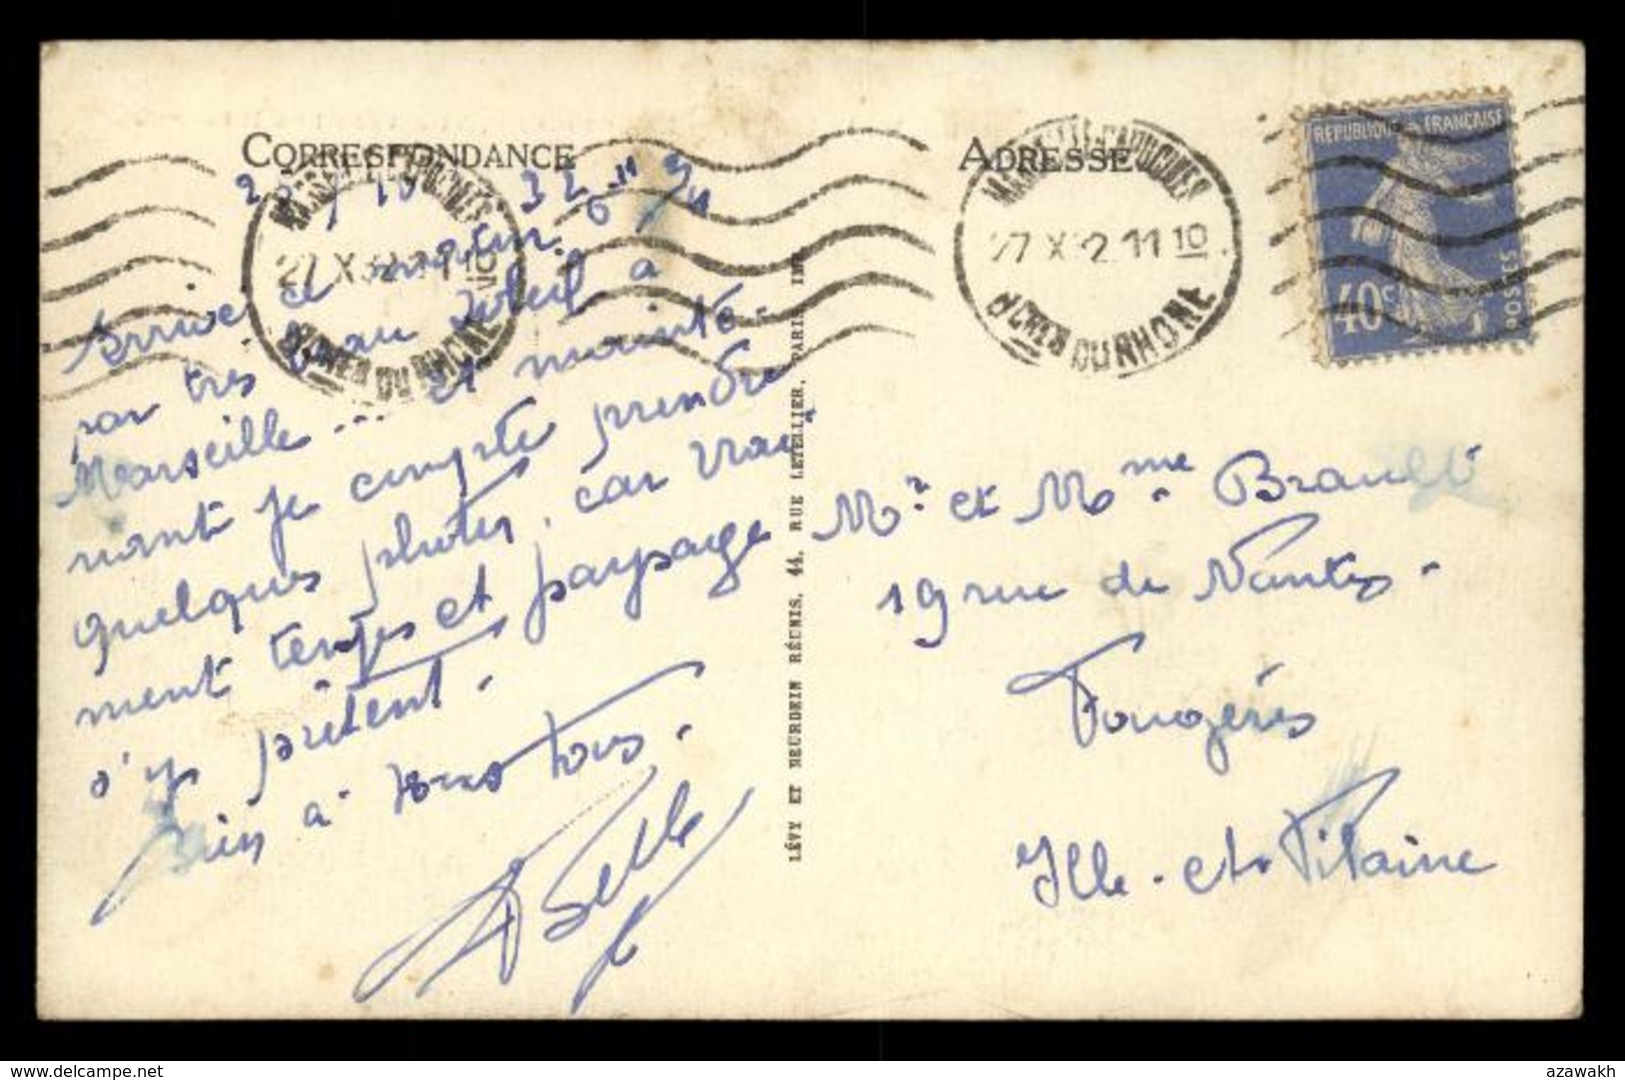 CORRESPONDANCE
Arrivé ce matin
par très beau soleil à
Marseille... et mainte-
nant je compte prendre
quelques photos, car vrai-
ment temps et paysage
s'y prêtent.
Bien à vous tous.
LÉVY ET NEURDEIN RÉUNIS, 44, RUE LETELLIER, PARIS IMP
ADRESSE
27 X 32 11 10
BCHES DU RHONE
27 X 32 11 10
BCHES DU RHONE
REPUBLIQUE FRANÇAISE
40c
POSTES
Mr et Mme Brault
19 rue de Nantes.
Fougères
Ille-et-Vilaine
delcampe.net
azawakh